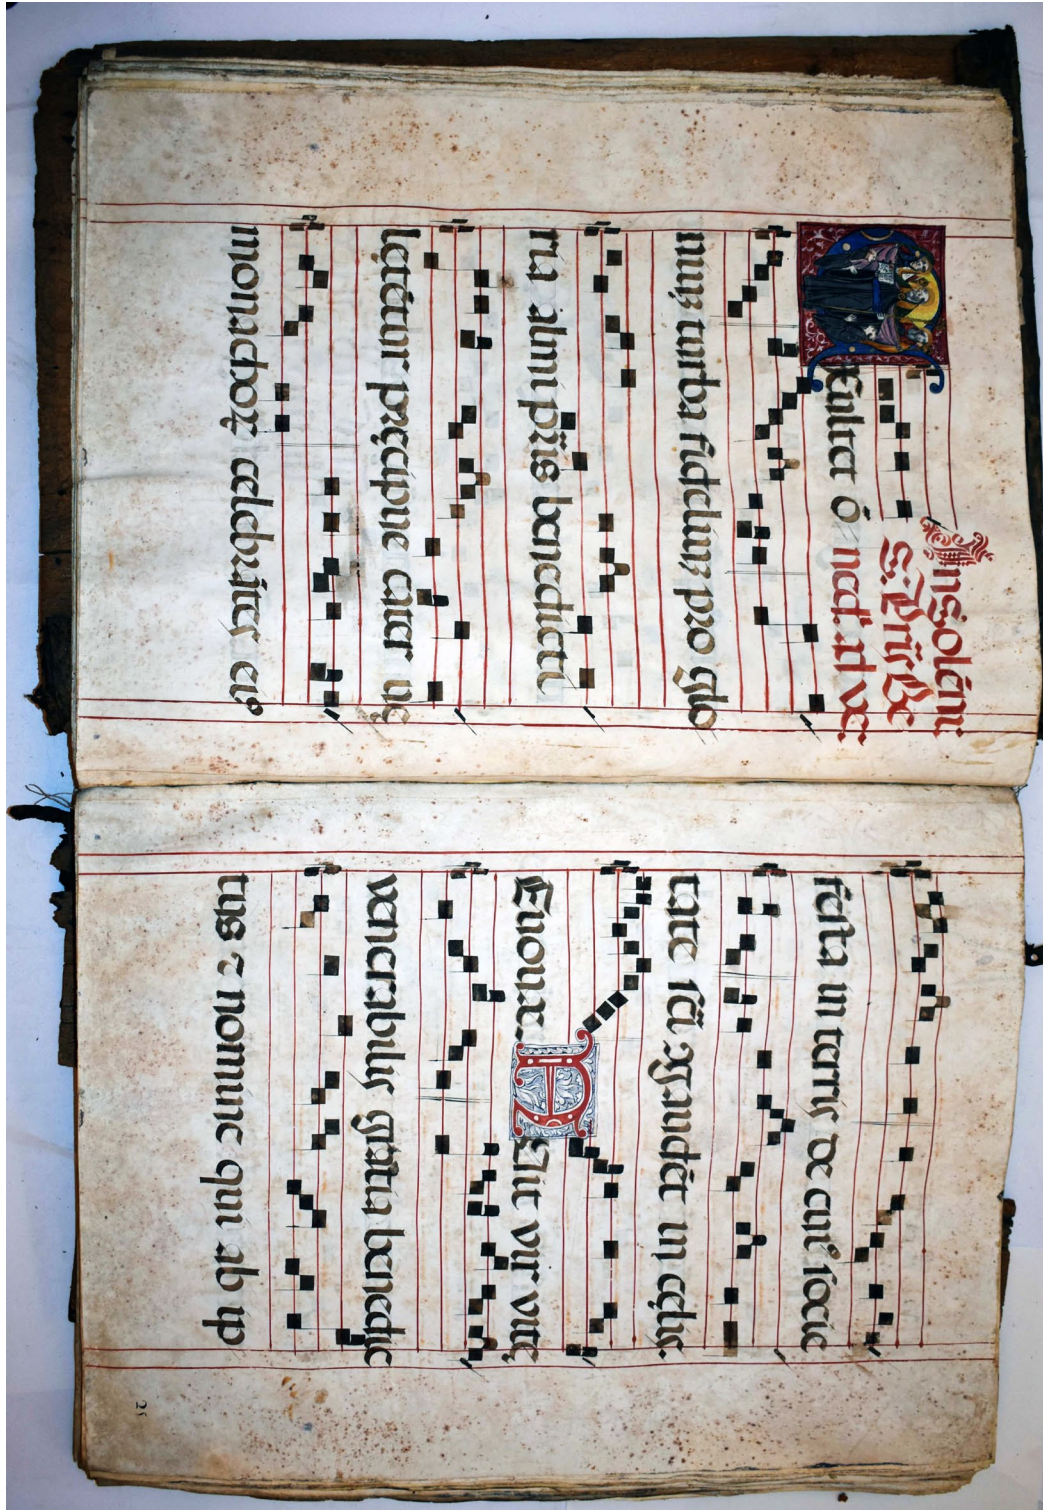 In solēni.
S. Pr̄is Be
EXultet ō nedi. ad ve:
niuʒ turba fideliuʒ pro glo
ria almi pr̄is benedicti
lętētur pręcipue cater uę
monachoꝝ celebrātes ei⁹
festa in terris de cui⁹ socie
tate sc̄i gaudēt in cęlis.
Euouae. FUit vir vitę
venerabilis gr̄atia benedic
tus ⁊ nomine qui ab ip